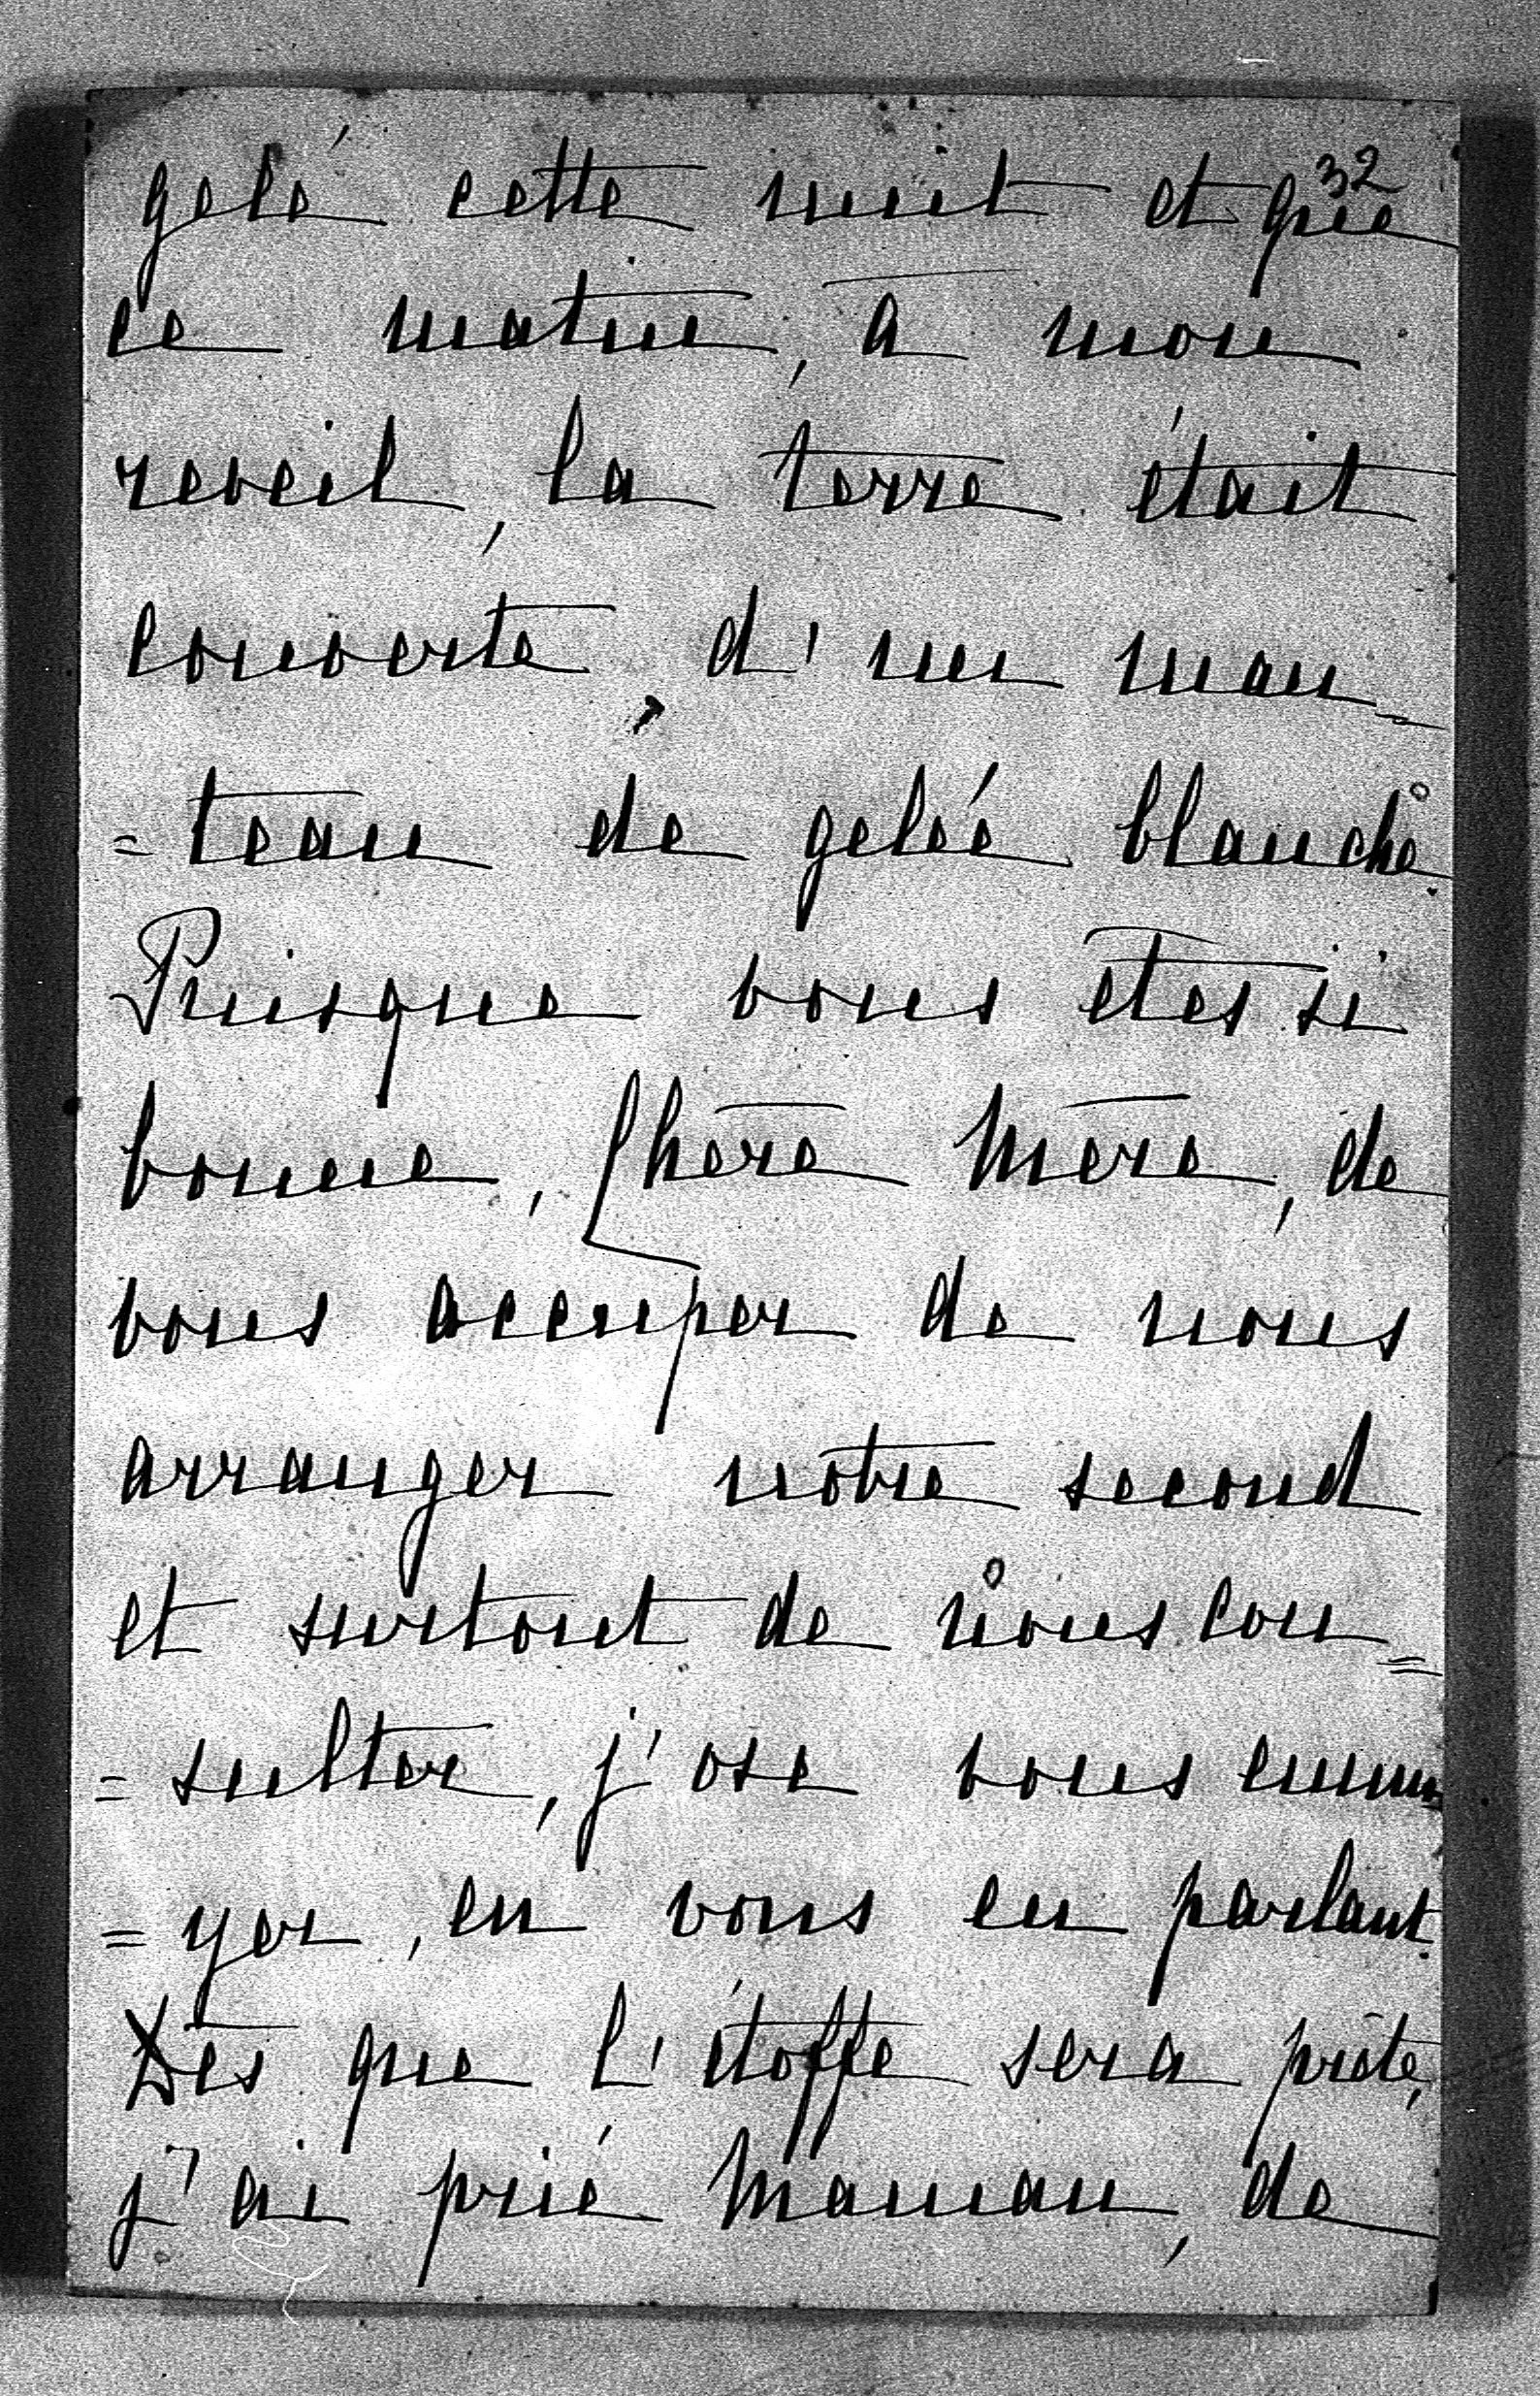 32
gelé cette nuit et que
ce matin, à mon
reveil, la terre était
couverte, d'un man
= teau de gelée blanche.
Puisque vous êtes si
bonne, Chère Mère, de
vous occuper de nous
arranger notre second
et surtout de nous con=
= sulter, j'ose vous ennu
= yer, en vous en parlant.
Dès que l'étoffe sera prête,
j'ai prié Maman, de